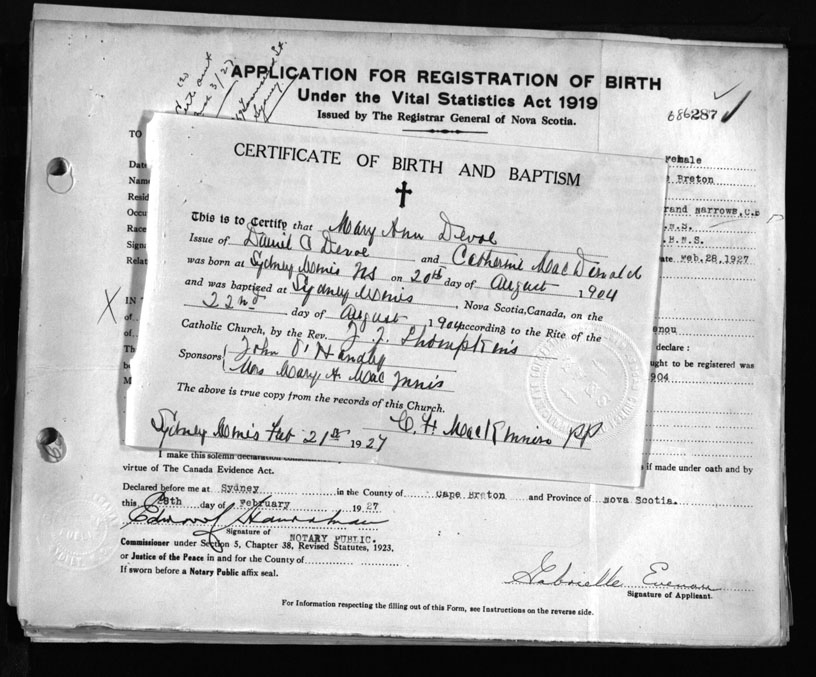 APPLICATION FOR REGISTRATION OF BIRTH
Under the Vital Statistics Act 1919
Issued by The Registrar General of Nova Scotia.
686287
TO
Female
Breton
Grand Narrows, C.B
Feb. 28, 1927
CERTIFICATE OF BIRTH AND BAPTISM
This is to Certify that Mary Ann Devoe
Issue of Daniel C Devoe and Catherine MacDonald
was born at Sydney Mines NS on 20th day of August 1904
and was baptized at Sydney Mines, Nova Scotia, Canada, on the
22nd day of August 1904 According to the Rite of the
Catholic Church, by the Rev. J. J. Thompkins
Sponsors John O'Handley
Mrs Mary A. MacInnis
The above is true copy from the records of this Church.
Sydney Mines Feb 21st 1927
C. F. MacKinnon PP
declare :
ought to be registered was
1904
I make this solemn declaration
if made under oath and by
virtue of The Canada Evidence Act.
Declared before me at Sydney in the County of Cape Breton and Province of Nova Scotia.
this 28th day of February 1927
Signature of NOTARY PUBLIC.
Commissioner under Section 5, Chapter 38, Revised Statutes, 1923,
or Justice of the Peace in and for the County of
If sworn before a Notary Public affix seal.
Gabrielle Evenou
Signature of Applicant.
For Information respecting the filling out of this Form, see Instructions on the reverse side.